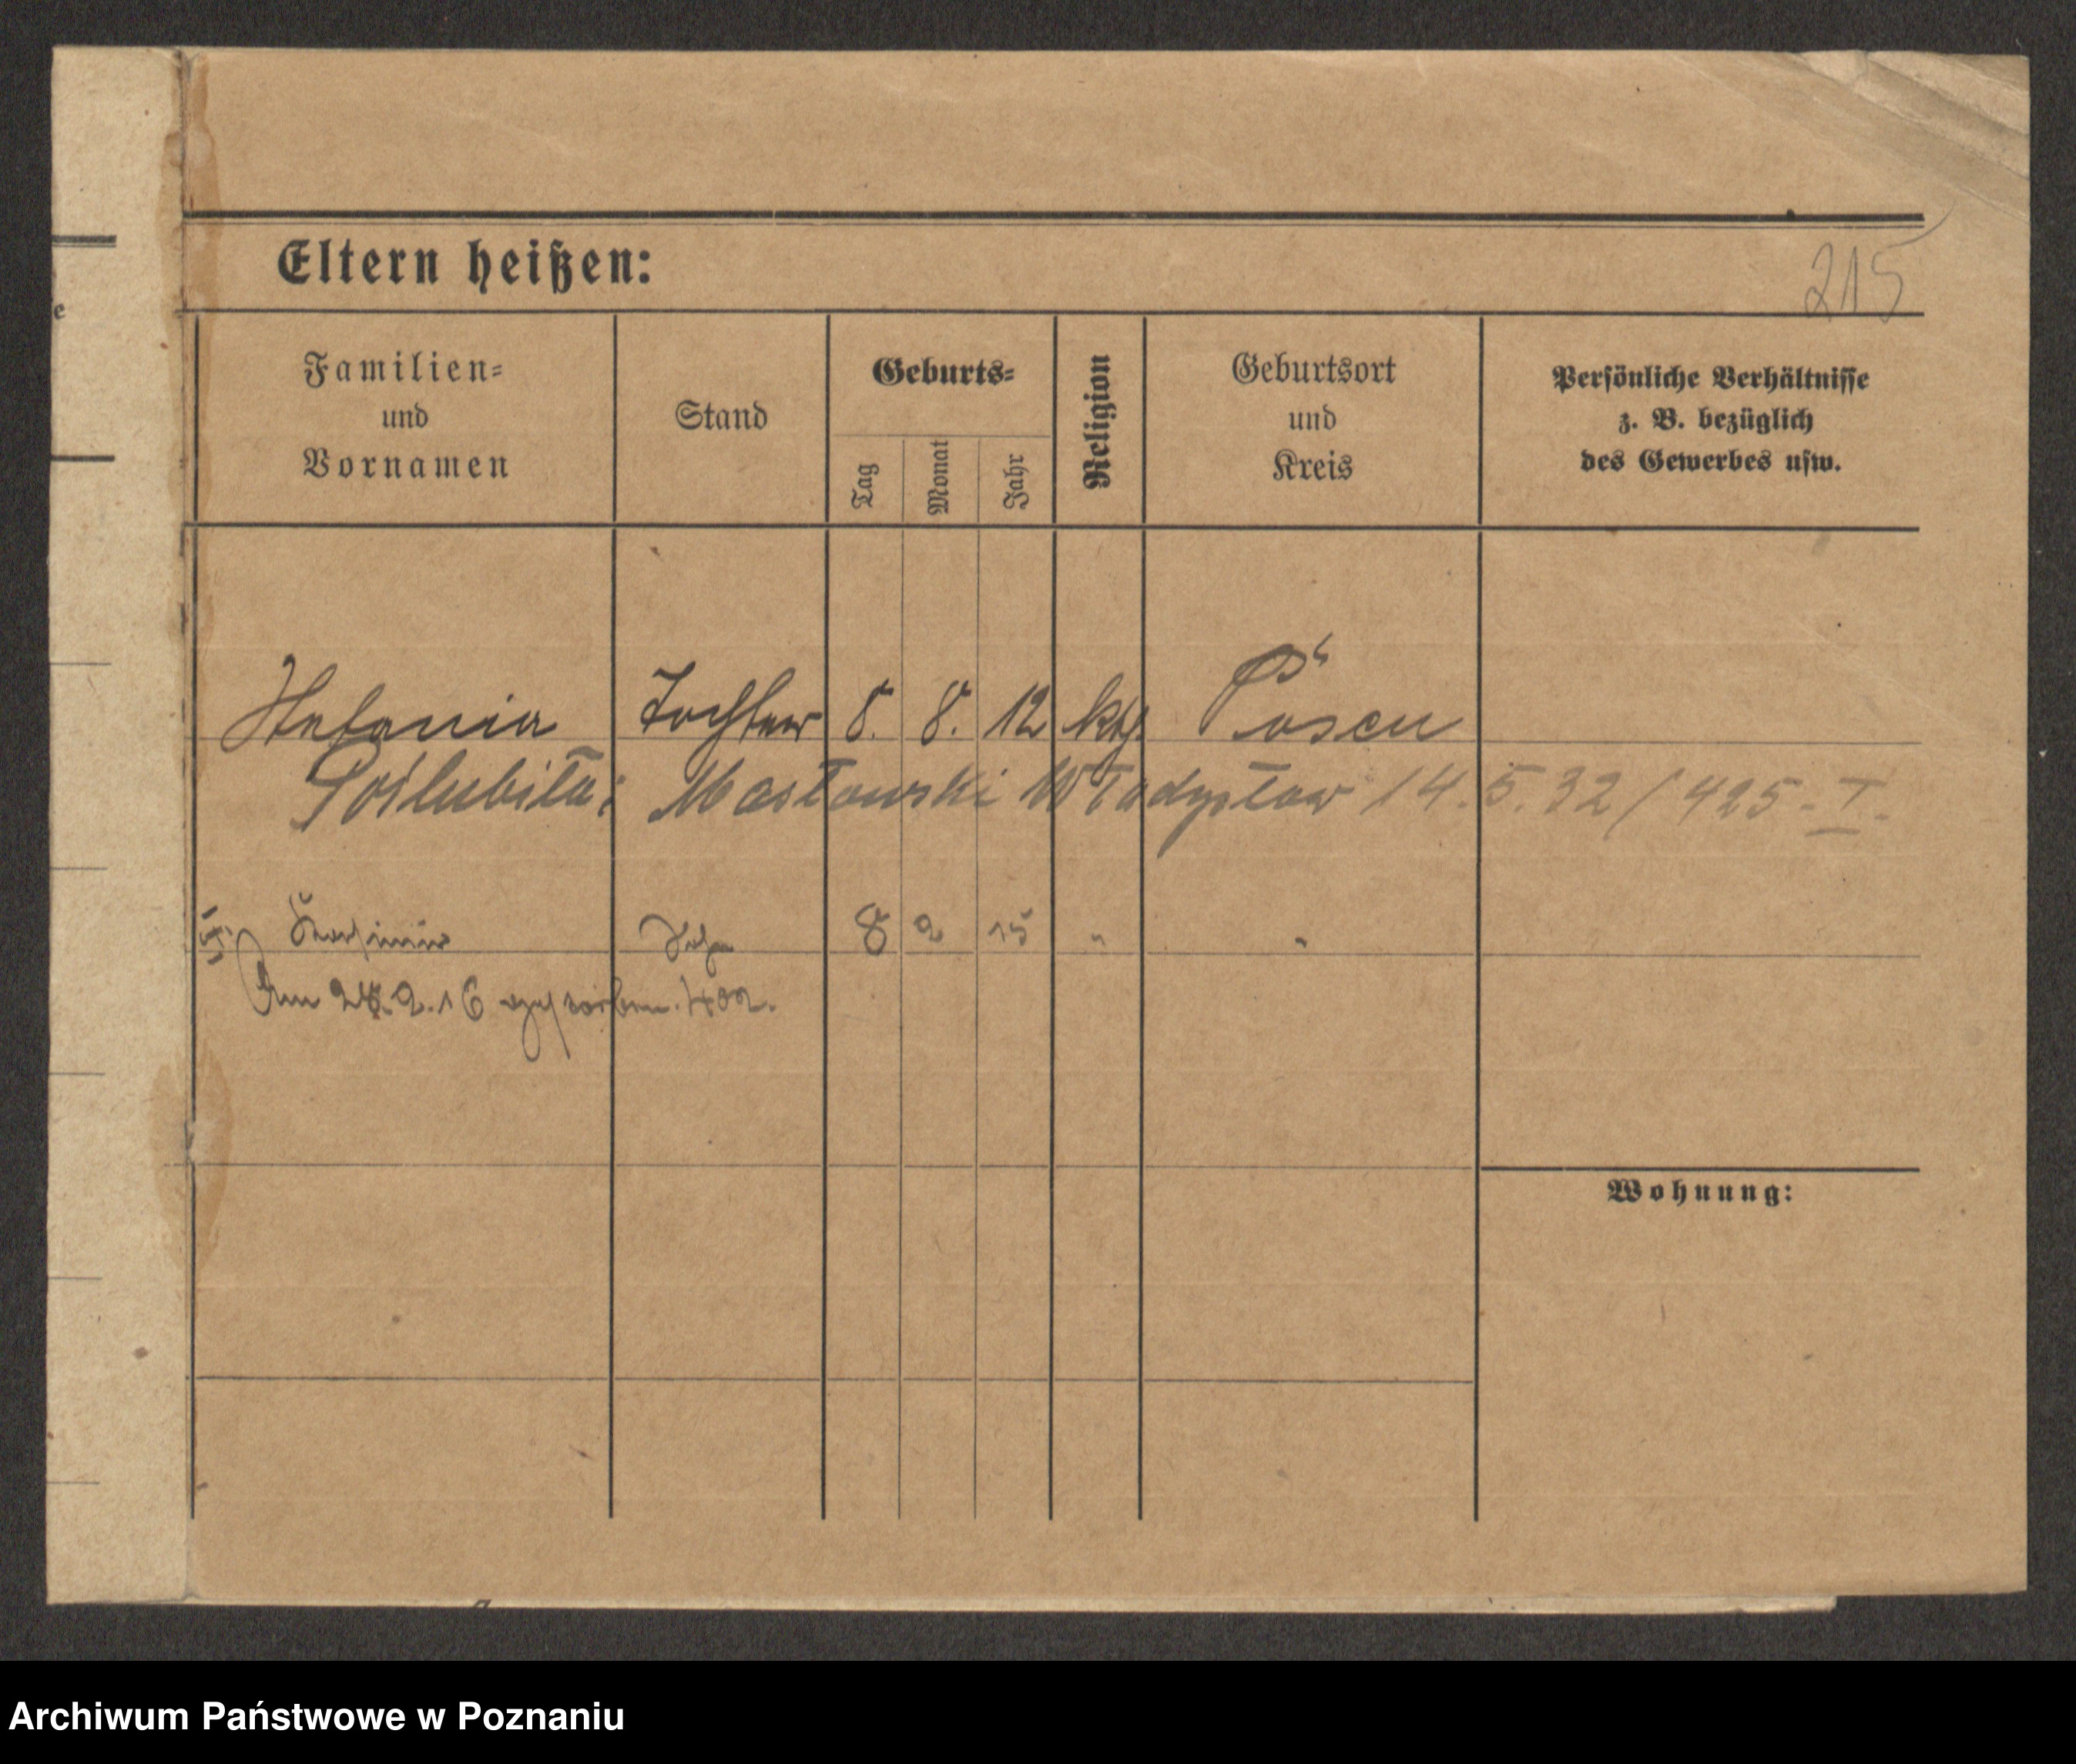 Eltern heißen:
215
Familien=
und
Vornamen
Stand
Geburts=
Tag
Monat
Jahr
Religion
Geburtsort
und
Kreis
Persönliche Verhältnisse
z. B. bezüglich
des Gewerbes usw.
e
Stefania Tochter 8. 8. 12 kth. Posen
Poślubiła: Masłowski Władysław 14.5.32/425-I-
Kasimir Sohn 8 2 15 " "
Am 28.2.16 verstorben. 402.
Wohnung:
Archiwum Państwowe w Poznaniu